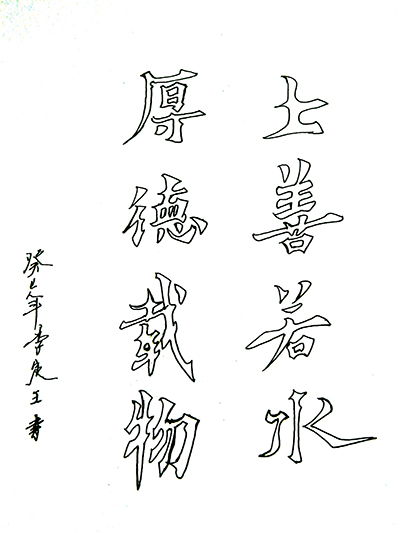 上善若水
厚德载物
癸巳年李 書